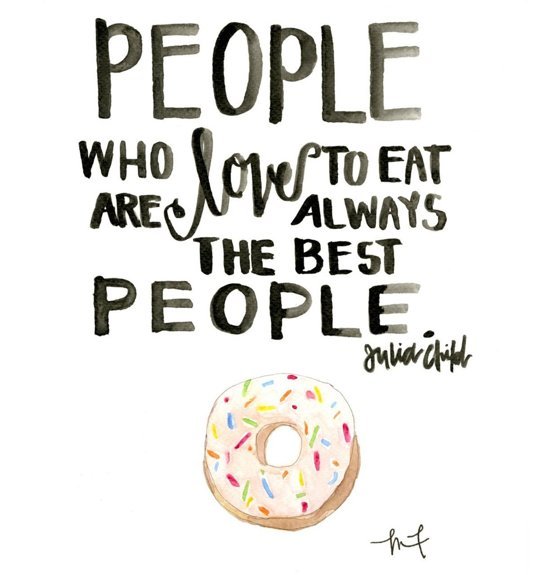 PEOPLE
WHO love TO EAT
ARE ALWAYS
THE BEST
PEOPLE.
Julia Child